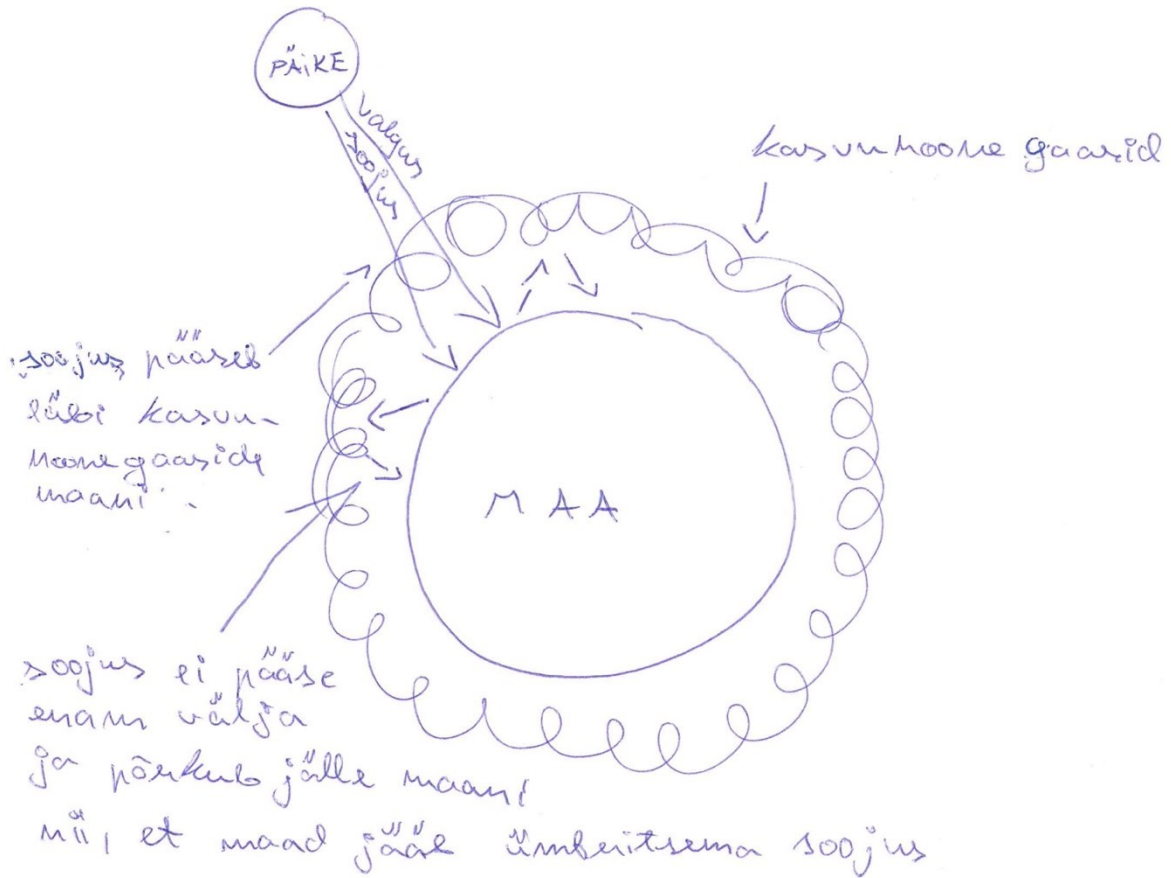 PÄIKE
valgus
soojus
kasvuhoone gaasid
soojus pääseb
läbi kasvu-
hoonegaaside
maani.
MAA
soojus ei pääse
enam välja
ja põrkub jälle maani
nii, et maad jääb ümbritsema soojus